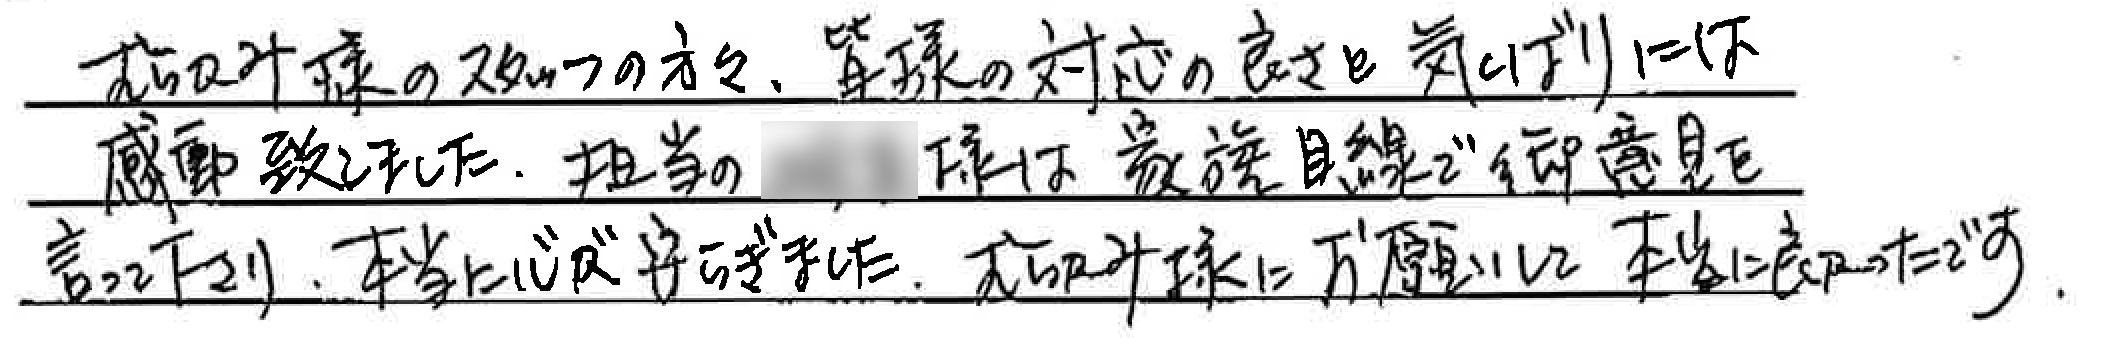 むらかみ様のスタッフの方々、皆様の対応の良さと気くばりには
感動致しました. 担当の 様は家族目線で御意見を
言って下さり、本当に心が安らぎました. むらかみ様にお願いして本当に良かったです.